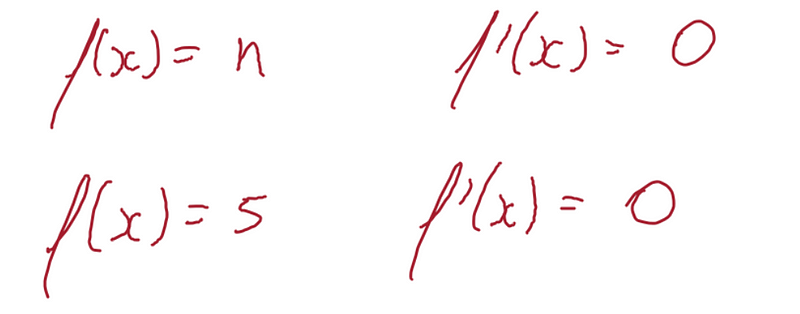 f(x) = n f'(x) = 0
f(x) = 5 f'(x) = 0